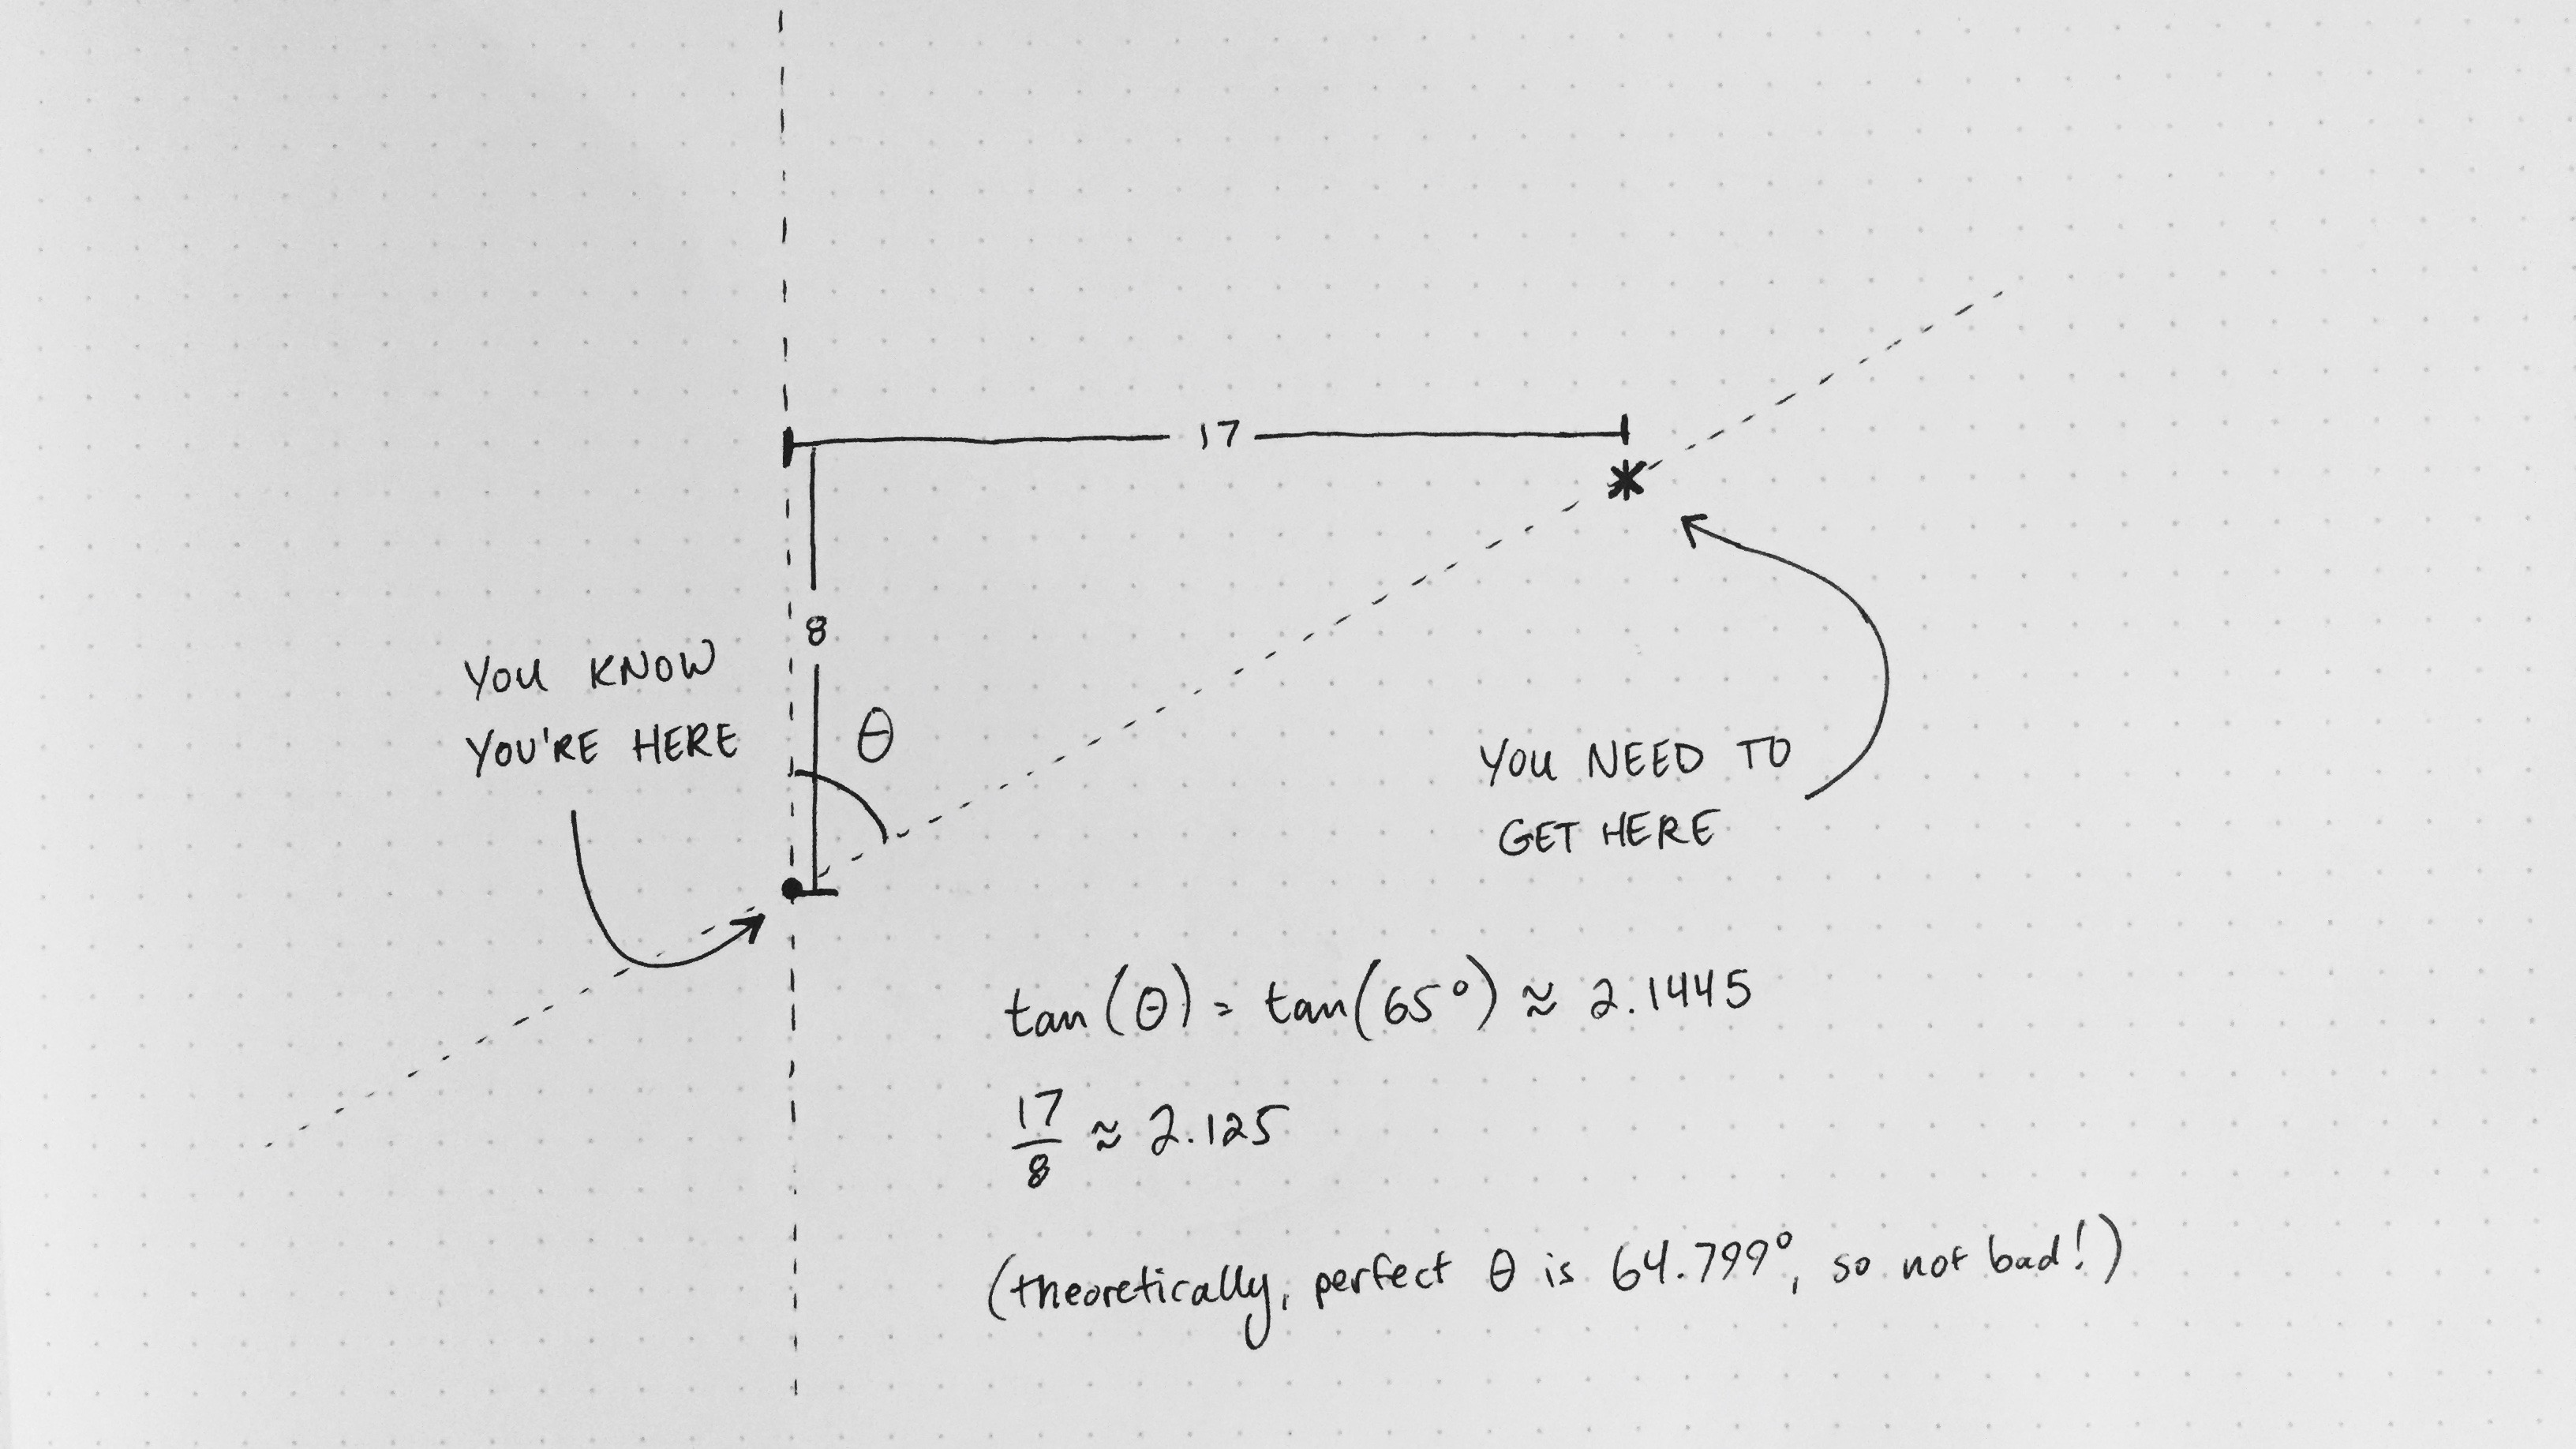 17
8
YOU KNOW
YOU'RE HERE
θ
YOU NEED TO
GET HERE
tan(θ) = tan(65°) ≈ 2.1445
17/8 ≈ 2.125
(theoretically, perfect θ is 64.799°, so not bad!)